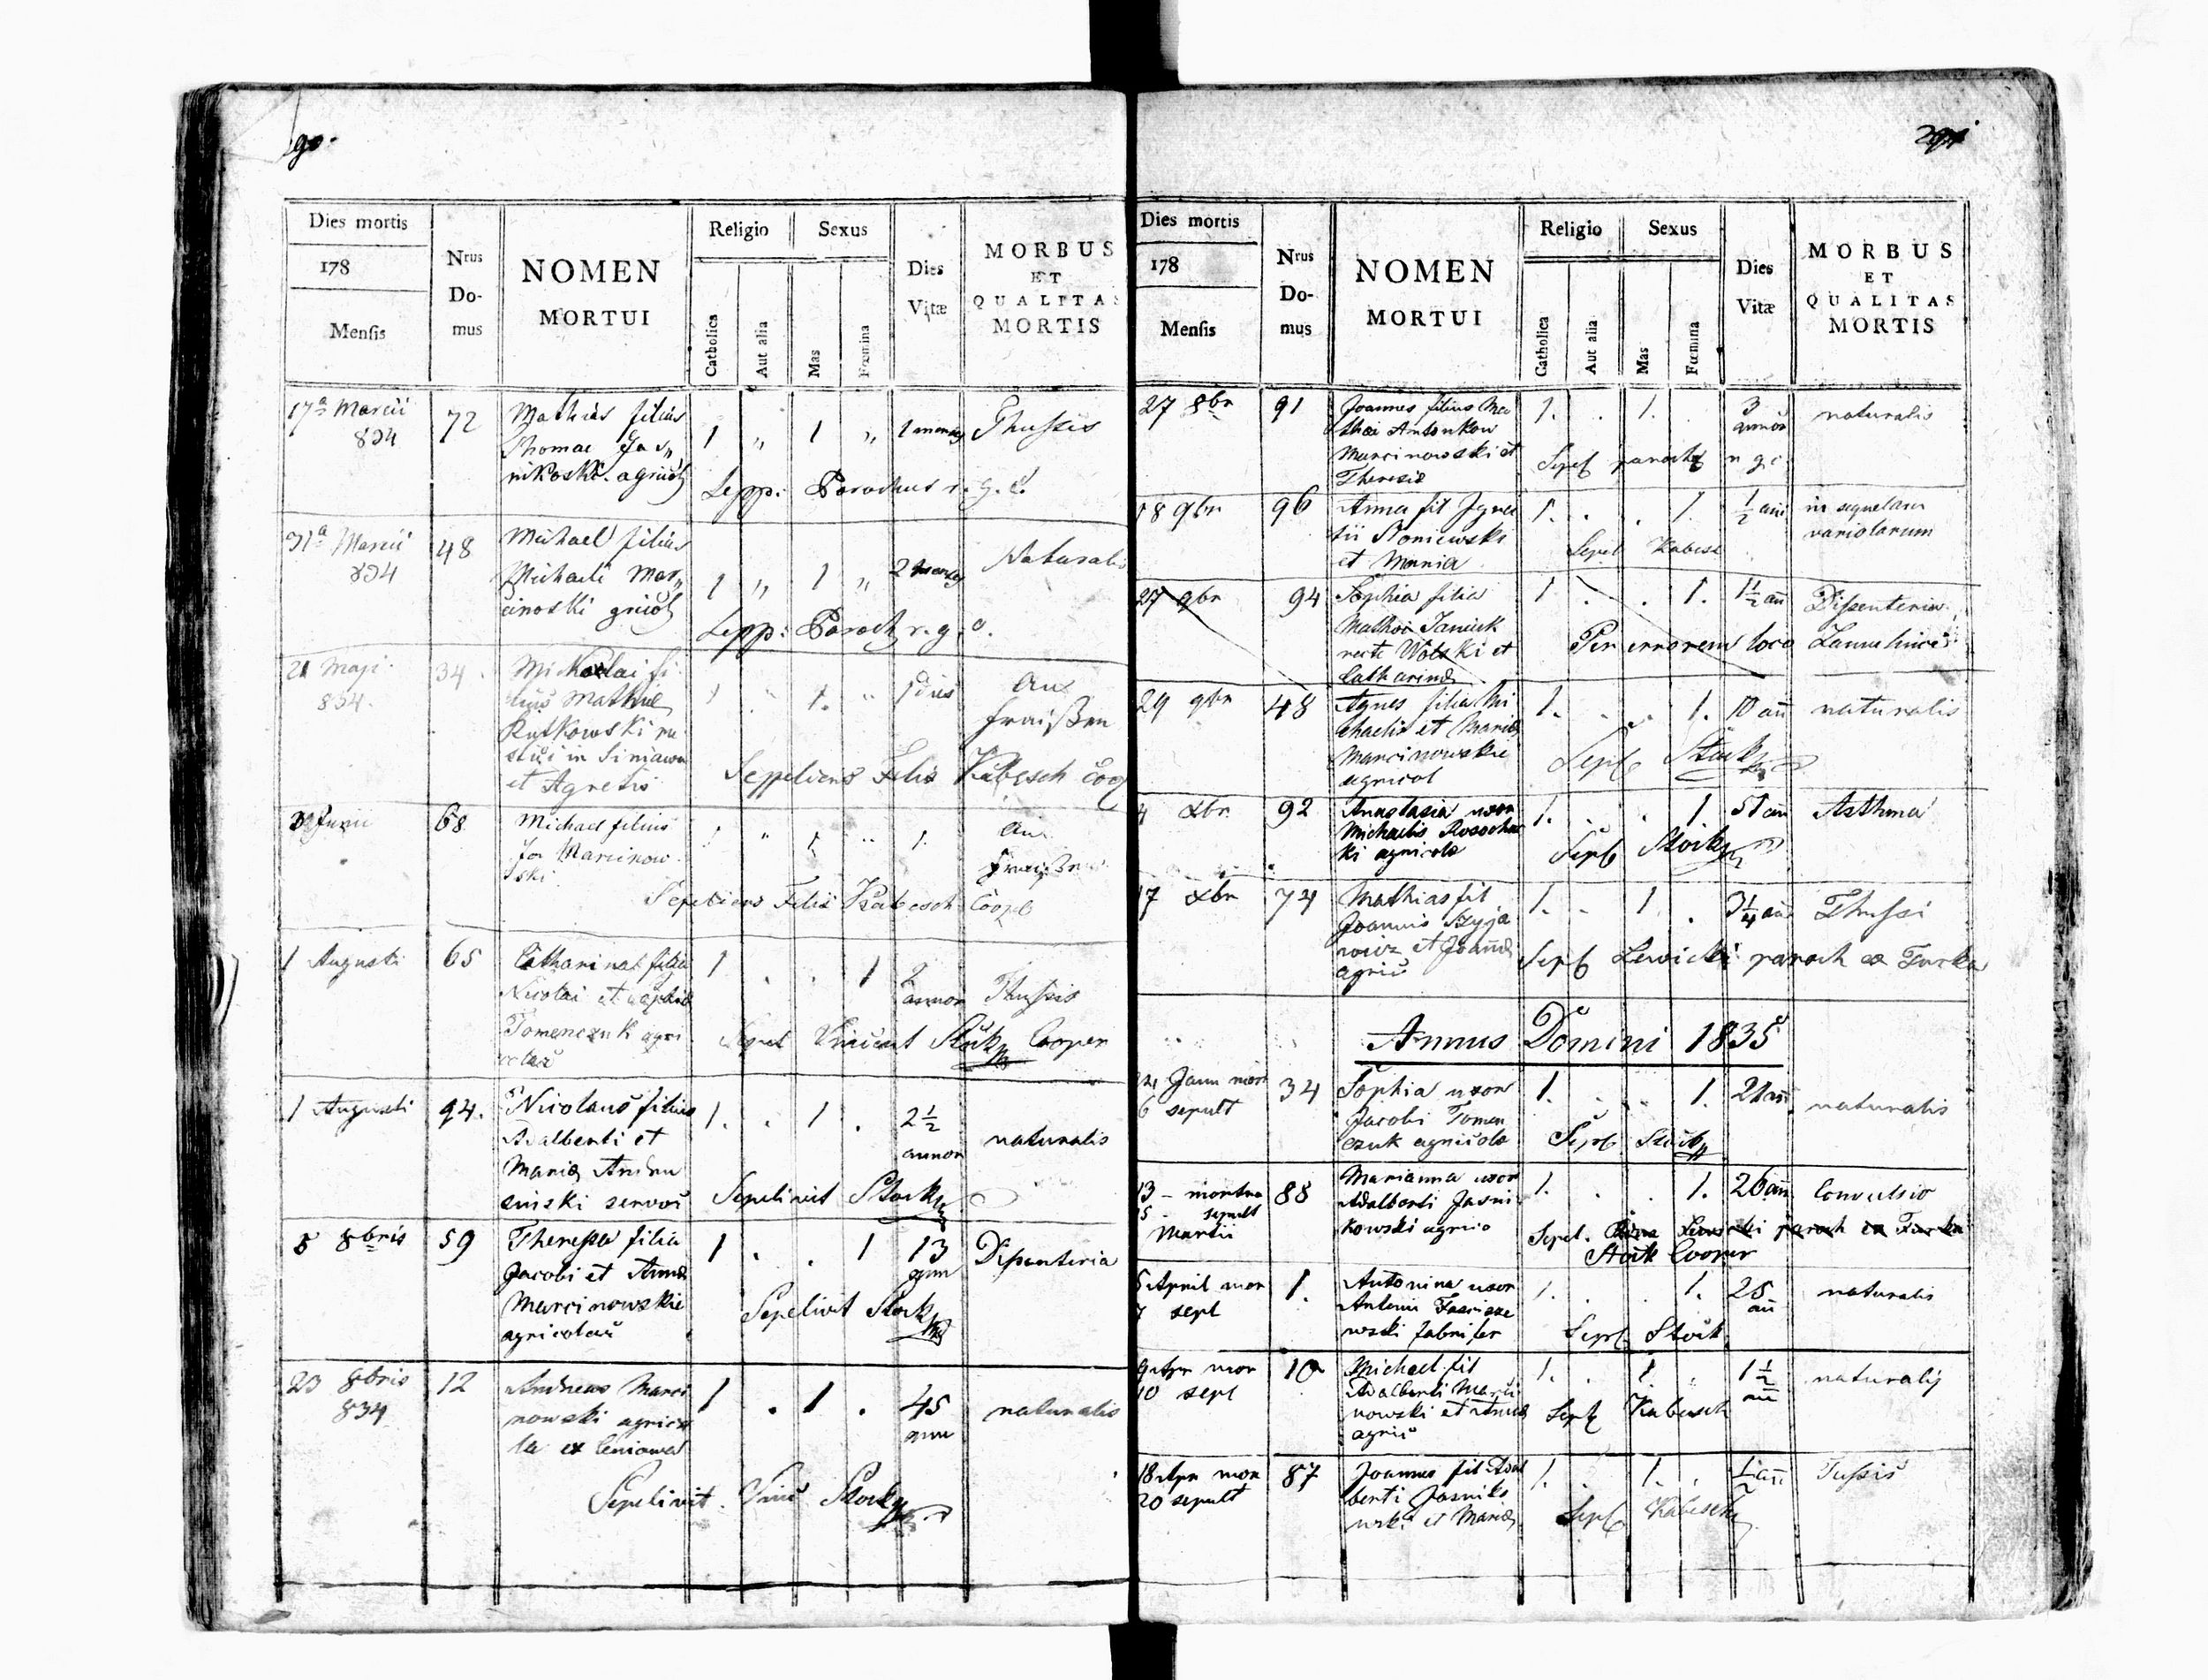 90.
Dies mortis
178
Mensis
Nrus
Do-
mus
NOMEN
MORTUI
Religio
Catholica
Aut alia
Sexus
Mas
Fœmina
Dies
Vitæ
MORBUS
ET
QUALITAS
MORTIS
17a Marcii
834
72
Mathias filius
Thomae Jas„
nikoski agricol
1 „ 1 „
1 mensis
Thussis
Sepp: Parochus r. g. c.
31a Marcii
834
48
Michael filius
Michaeli Mar„
cinoski gricol
1 „ 1 „
2 mens
Naturalis
Sepp: Paroch r. g. c.
21 Maji
834.
34.
Mikolai fi
lius Mathiae
Rutkowski ru
stici in Siniawa
et Agnetis
1 „ 1. „
1 dies
An
fraißen
Sepeliens Felix Kabesch Coop
Junii
68
Michael filius
Jos Marcinow
ski
1 „ 1 „ 1.
An
fraißen
Sepeliens Felix Kabesch Coop
1 Augusti
65
Catharina filia
Nicolai et Sophiae
Tomenczuk agri
colae
1 . . 1
2
annor
Thussis
Sepel Vincent Stöck Cooper
1 Augusti
94.
Nicolaus filius
Adalberti et
Mariae Andru
sinski servor
1. . 1 .
2½
annor
naturalis
Sepelivit Stock
8 8bris
59
Theressa filia
Jacobi et Annae
Marcinowskie
agricolae
1 . . 1
13
ann
Dissenteria
Sepelivit Stock
23 8bris
834
12
Andreas Marci
nowski agrico
la ex Leniowa
1 . 1 .
45
ann
naturalis
Sepelivit Vinc Stock
291
Dies mortis
178
Mensis
Nrus
Do-
mus
NOMEN
MORTUI
Religio
Catholica
Aut alia
Sexus
Mas
Fœmina
Dies
Vitæ
MORBUS
ET
QUALITAS
MORTIS
27 8br
91
Joannes filius Ma
thei Antonkow
Marcinowski et
Theresiae
1. . 1.
3
annor
naturalis
Sepel paroch r g c
18 9br
96
Anna fil Igna
tii Roniewski
et Mania
1. . . 1.
½ ann
in sequelam
variolarum
Sepel Kabesch
27 9br
94
Sophia filia
Mathei Janiuk
recte Wolski et
Catharinae
1 . . 1.
1½ an
Dissenteria
Per errorem loco
29 9br
48
Agnes filia Mi
chaelis et Mariae
Marcinowskie
agricol
1. . . 1.
10 an
naturalis
Sepel Stock
4 Xbr
92
Anastasia uxor
Michaelis Rosocha
ki agricola
1. . . 1.
51 an
Asthma
Sepel Stöck
17 Xbr
74
Mathias fil
Joannis Szyja
rowicz et Joannae
agric
1. . 1 .
3¼ an
Thussi
Sepel Lewicki paroch ex Turka
Annus Domini 1835
Janu mor
6 sepult
34
Sophia uxor
Jacobi Tomen
czuk agricolae
1. . . 1.
21 an
naturalis
Sepel Stöck
13 - mortua
15 - sepult
Martii
88
Marianna uxor
Adalberti Jasni
kowski agrico
1. . . 1.
26 an
Convulsio
Sepel. Lewicki paroch ex Turka
Stöck Cooper
5 April mor
7 sept
1.
Antonina uxor
Antoni
wski fabri fer
1. . . 1.
25
an
naturalis
Sepel Stöck
9 Apr mor
10 sepl
10
Michael fil
Adalberti Marci
nowski et Annae
agric
1. . 1 .
1½
an
naturalis
Sepel Kabesch
18 Apr mor
20 sepult
87
Joannes fil Adal
berti Jasniko
wski et Mariae
1. . 1. .
½ an
Tussis
Sepel Kabesch